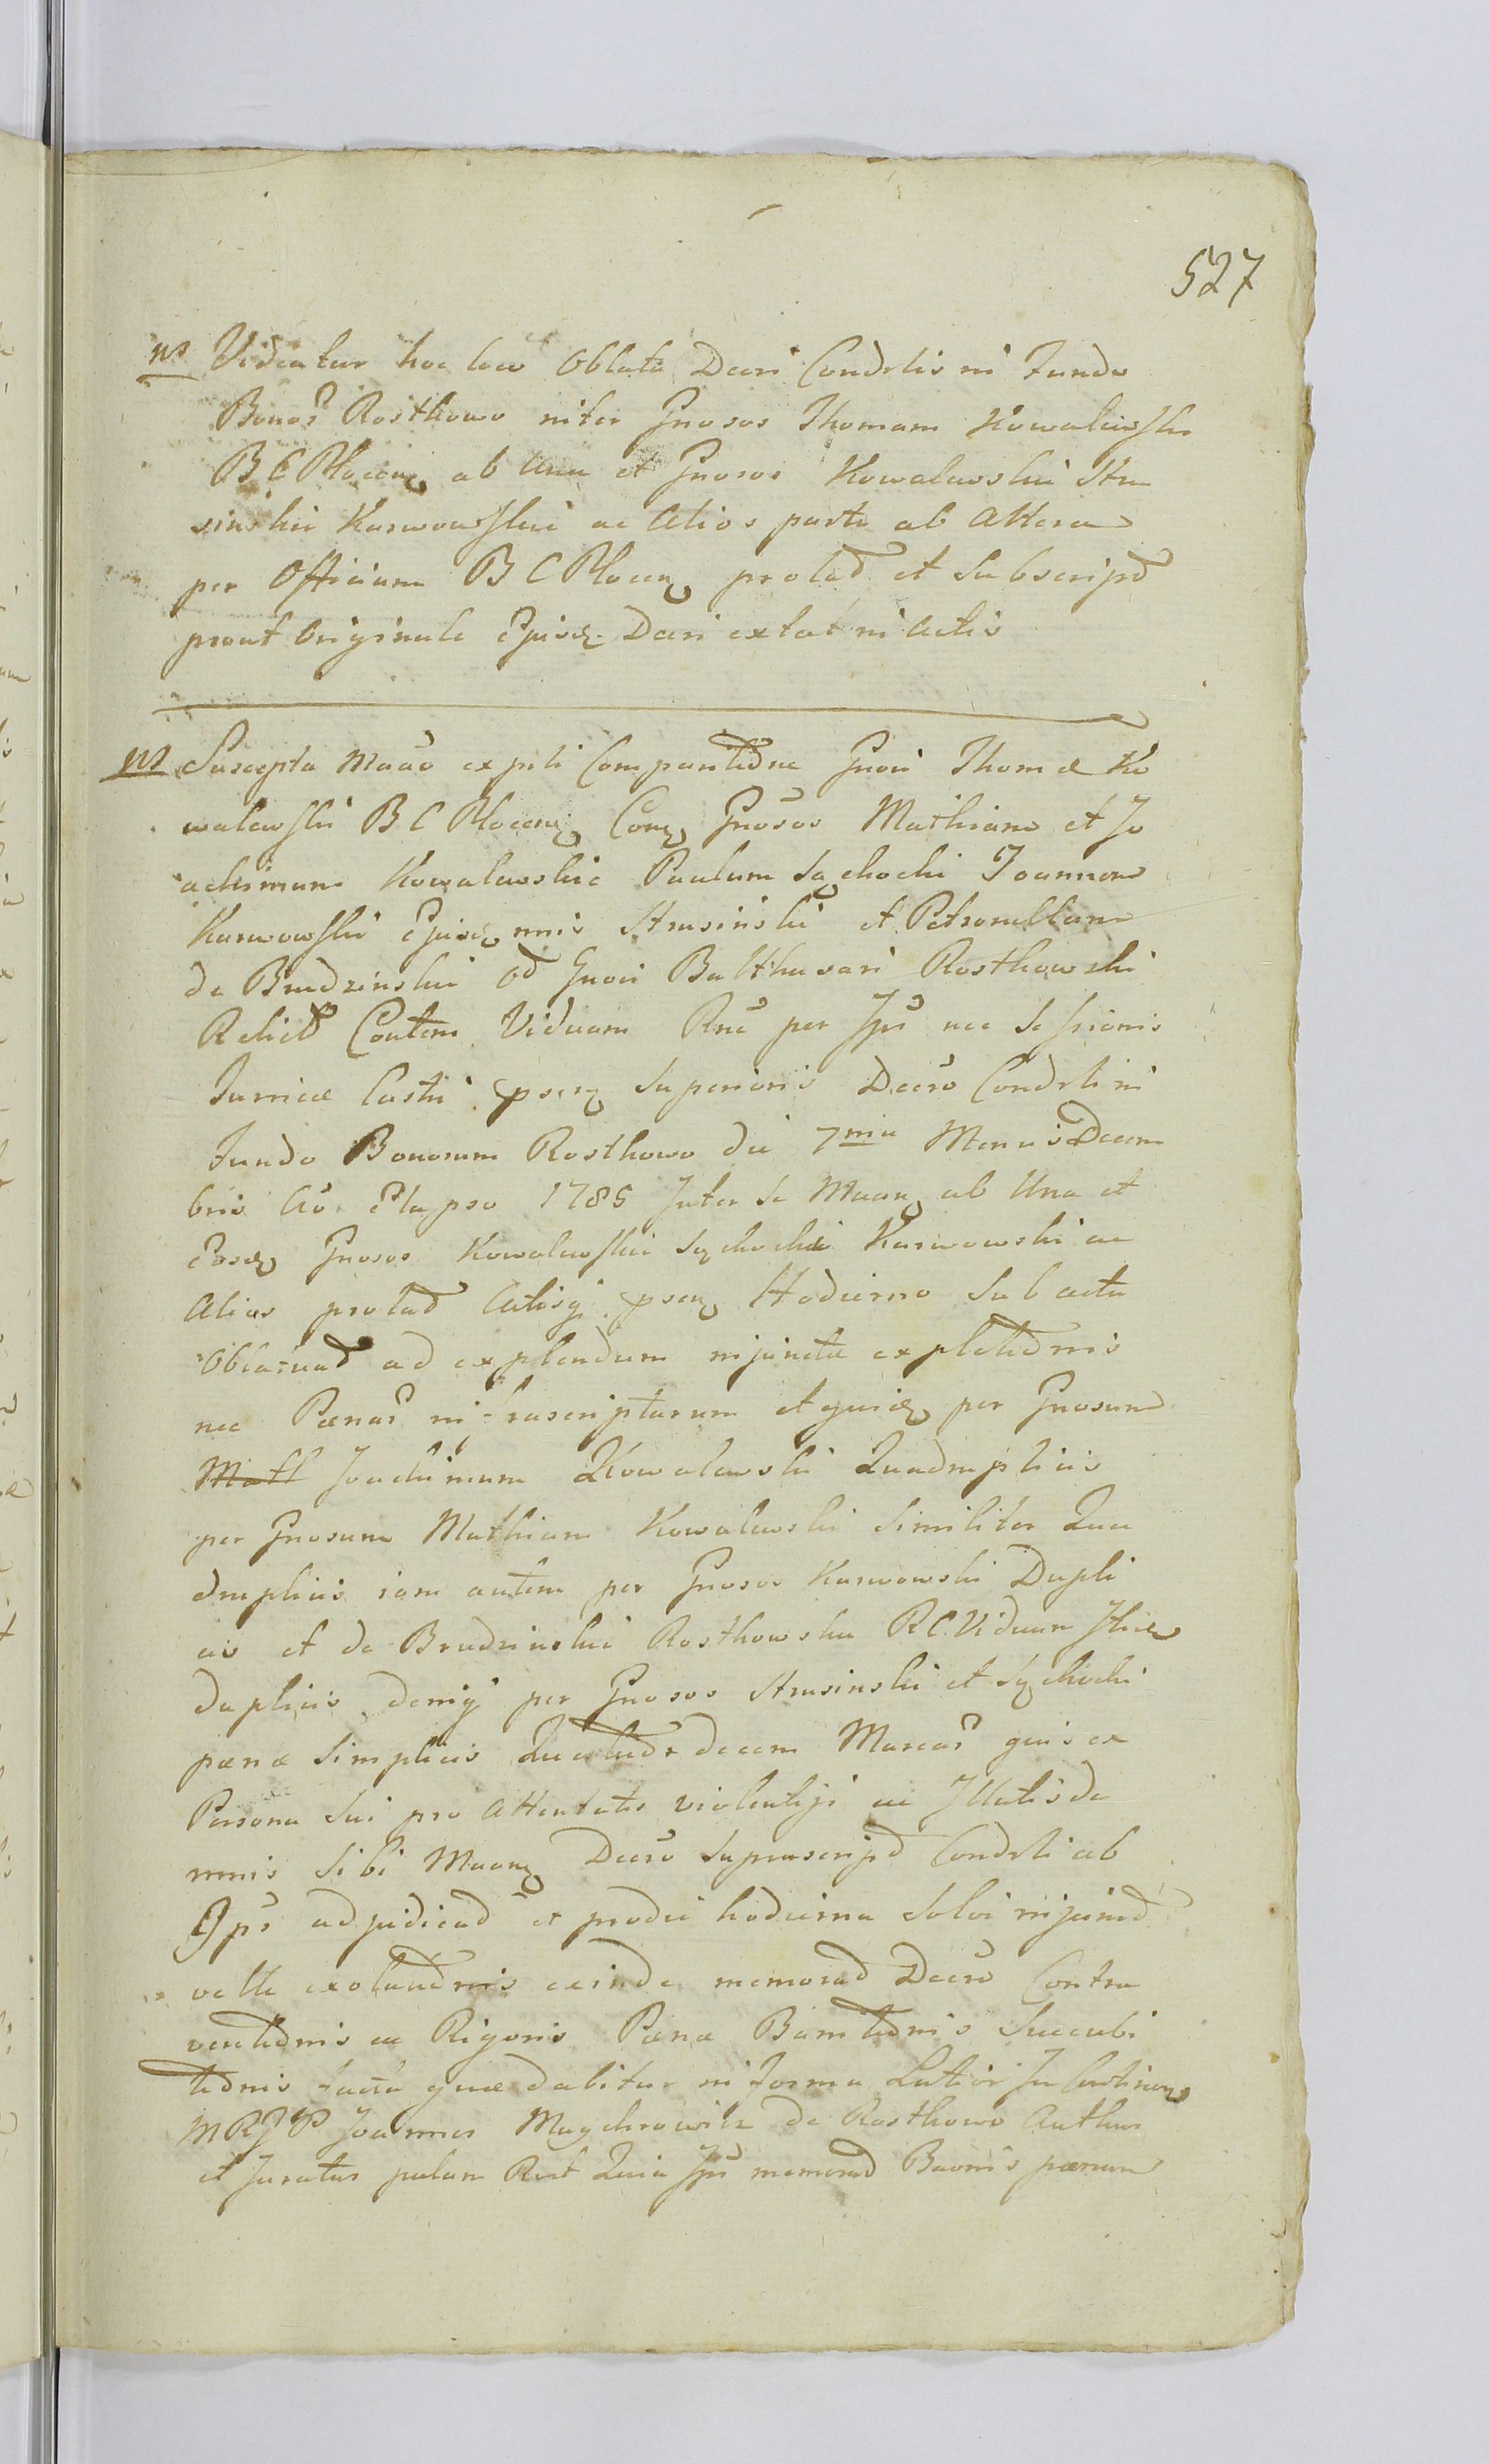 527
ns Videatur hoc loco Oblata Decri Condrtis in Fundo
Bonor Rosthowo inter Gnosos Thomam Kowalewski
B C Plocen ab Una et Gnosos Kowalewskie Stru
sinskie Karwowskie ac Alios parte ab Altera
per Officium B C Plocen prolat et Subscript
prout Originale Ejusd Decri extat in Actis
ns Suscepta Maao ex pti Comparitione Gnosi Thomæ Ko
walewski B C Plocen Com Gnosos Mathiam et Jo
achimum Kowalewskie Paulum Sąchocki Joannem
Karwowski Ejusd nnis Strusinski et Petronellam
de Brudzinskie Gnosi Balthasari Rosthowski
Relict Contem Viduam Rne per Jps nec Sessionis
Jurricæ Castri psen Superioris Decro Condrti in
Fundo Bonorum Rosthowo die 7ma Mensis Decem
bris Ao Elapso 1785 Inter se Maan ab Una et
Eosd Gnosos Kowalewskie Sąchockie Karwowskie ac
Alios prolat Actisq psen Hodierno Sub actu
Oblatuat ad explendum injunctæ expletionis
nec Pænar infrascripturum et quid per Gnosum
Joachimum Kowalewski Quadruplicis
per Gnosum Mathiam Kowalewski Similiter Qua
druplicis iam autem per Gnosos Karwowski Dupli
cis et de Brudzinskie Rosthowska R C Viduam Itid
duplicis deniq per Gnosos Strusinski et Sąchocki
pænæ Simplicis Quatuor decem Marcar quis ex
Persona Sui pro Attentatis violentijs ac Illatis da
mnis Sibi Maan Decro Suprascript Condrti ab
Jps adjudicat et prodie hodierna Solvi injunct
velle exolutionis exinde memorat Decro Contra
ventionis ac Rigoris Pæna Banitionis Succubi
tionis facta quæ dabitur in forma Latiori In Continen
M R J P Joannes Maychrowicz de Rosthowo Authus
et Juratus palam Rect Quia Jps memorat Baonis pænam